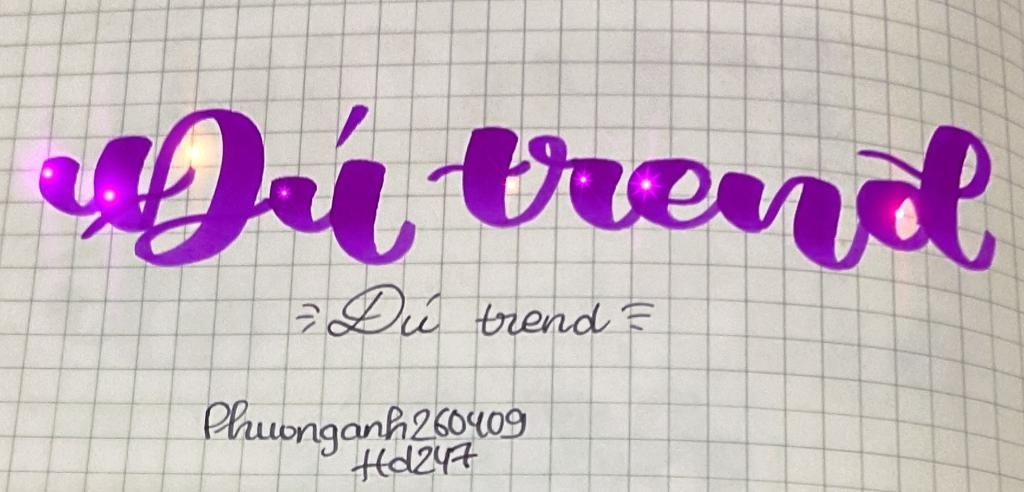 Dú trend
= Dú trend =
Phuonganh260409
Hd247